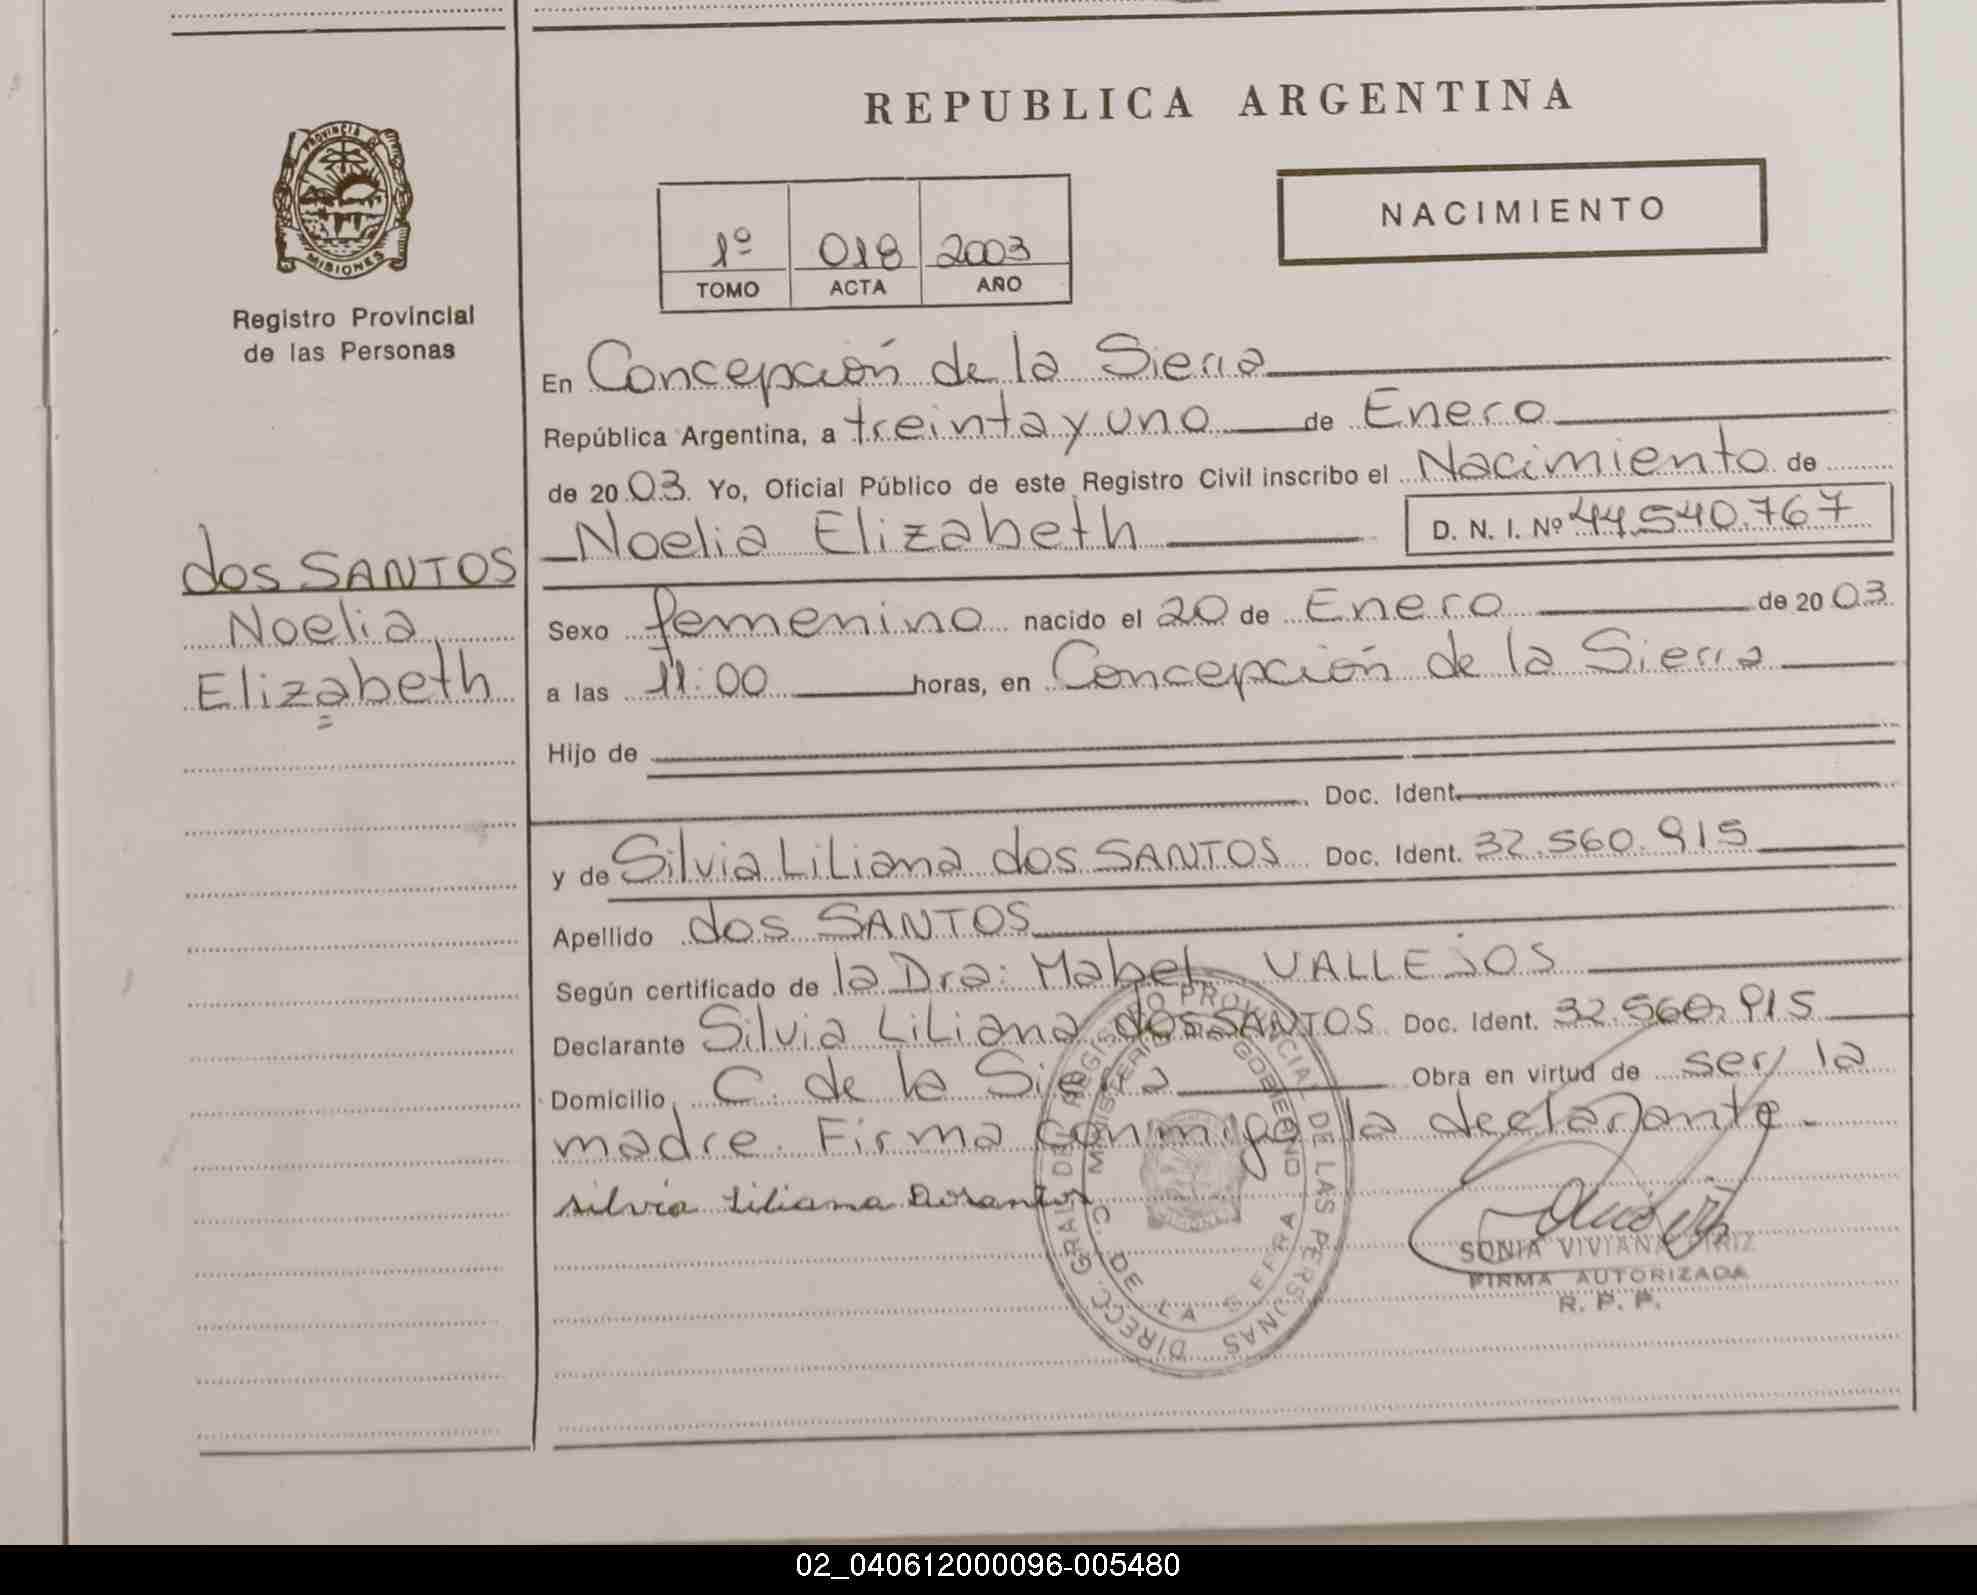 REPUBLICA ARGENTINA
NACIMIENTO
PROVINCIA
MISIONES
Registro Provincial
de las Personas
1º 018 2003
TOMO ACTA AÑO
En Concepción de la Sierra
República Argentina, a treinta y uno de Enero
de 2003. Yo, Oficial Público de este Registro Civil inscribo el Nacimiento de
Noelia Elizabeth D. N. I. Nº 44.540.767
dos SANTOS
Noelia
Elizabeth
Sexo femenino nacido el 20 de Enero de 2003
a las 11:00 horas, en Concepción de la Sierra
Hijo de
Doc. Ident.
y de Silvia Liliana dos SANTOS Doc. Ident. 32.560.915
Apellido dos SANTOS
Según certificado de la Dra: Mabel VALLEJOS
Declarante Silvia Liliana dos SANTOS Doc. Ident. 32.560.915
Domicilio C. de la Sierra Obra en virtud de ser la
madre. Firma conmigo la declarante.
Silvia Liliana Dosantos
DIRECC. GRAL. DEL REGISTRO PROVINCIAL DE LAS PERSONAS
MINISTERIO GOBIERNO
C. DE LA SIERRA
SONIA VIVIANA
FIRMA AUTORIZADA
R. P. P.
02_040612000096-005480